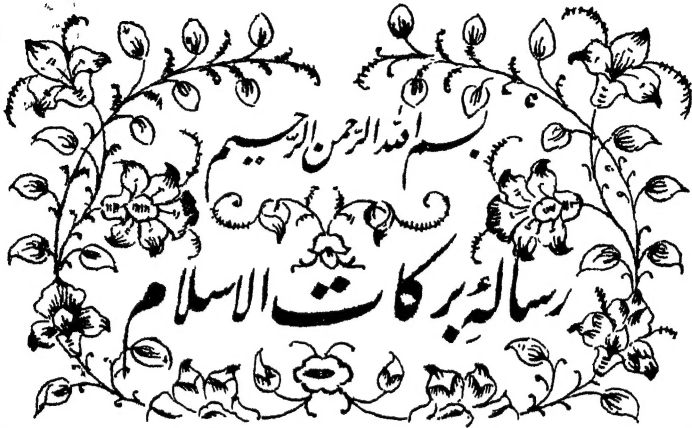 بسم الله الرحمن الرحیم
رسالهٔ برکات الاسلام